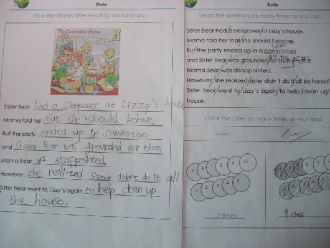 Date
Fill in the blanks after reading the summary.
The Berenstain Bears
Sister Bear had a sleepover at Lizzy's house
Mama told her that she should behave.
But the party ended up in commotion
and Sister Bear was grounded for that.
Mama Bear was disappointed.
However, she realized Sister didn't do it all
Sister Bear went to Lizzy's again to help clean up
the house.
Date
Read the summary as many times as you can.
Sister Bear had a sleepover at Lizzy's house.
Mama told her that she should behave.
But the party ended up in a commotion
and Sister Bear was grounded for
Mama Bear was disappointed.
However, she realized Sister didn't do it all by herself.
Sister Bear went to Lizzy's again to help clean up
the house.
Color the circles as many times as you read.